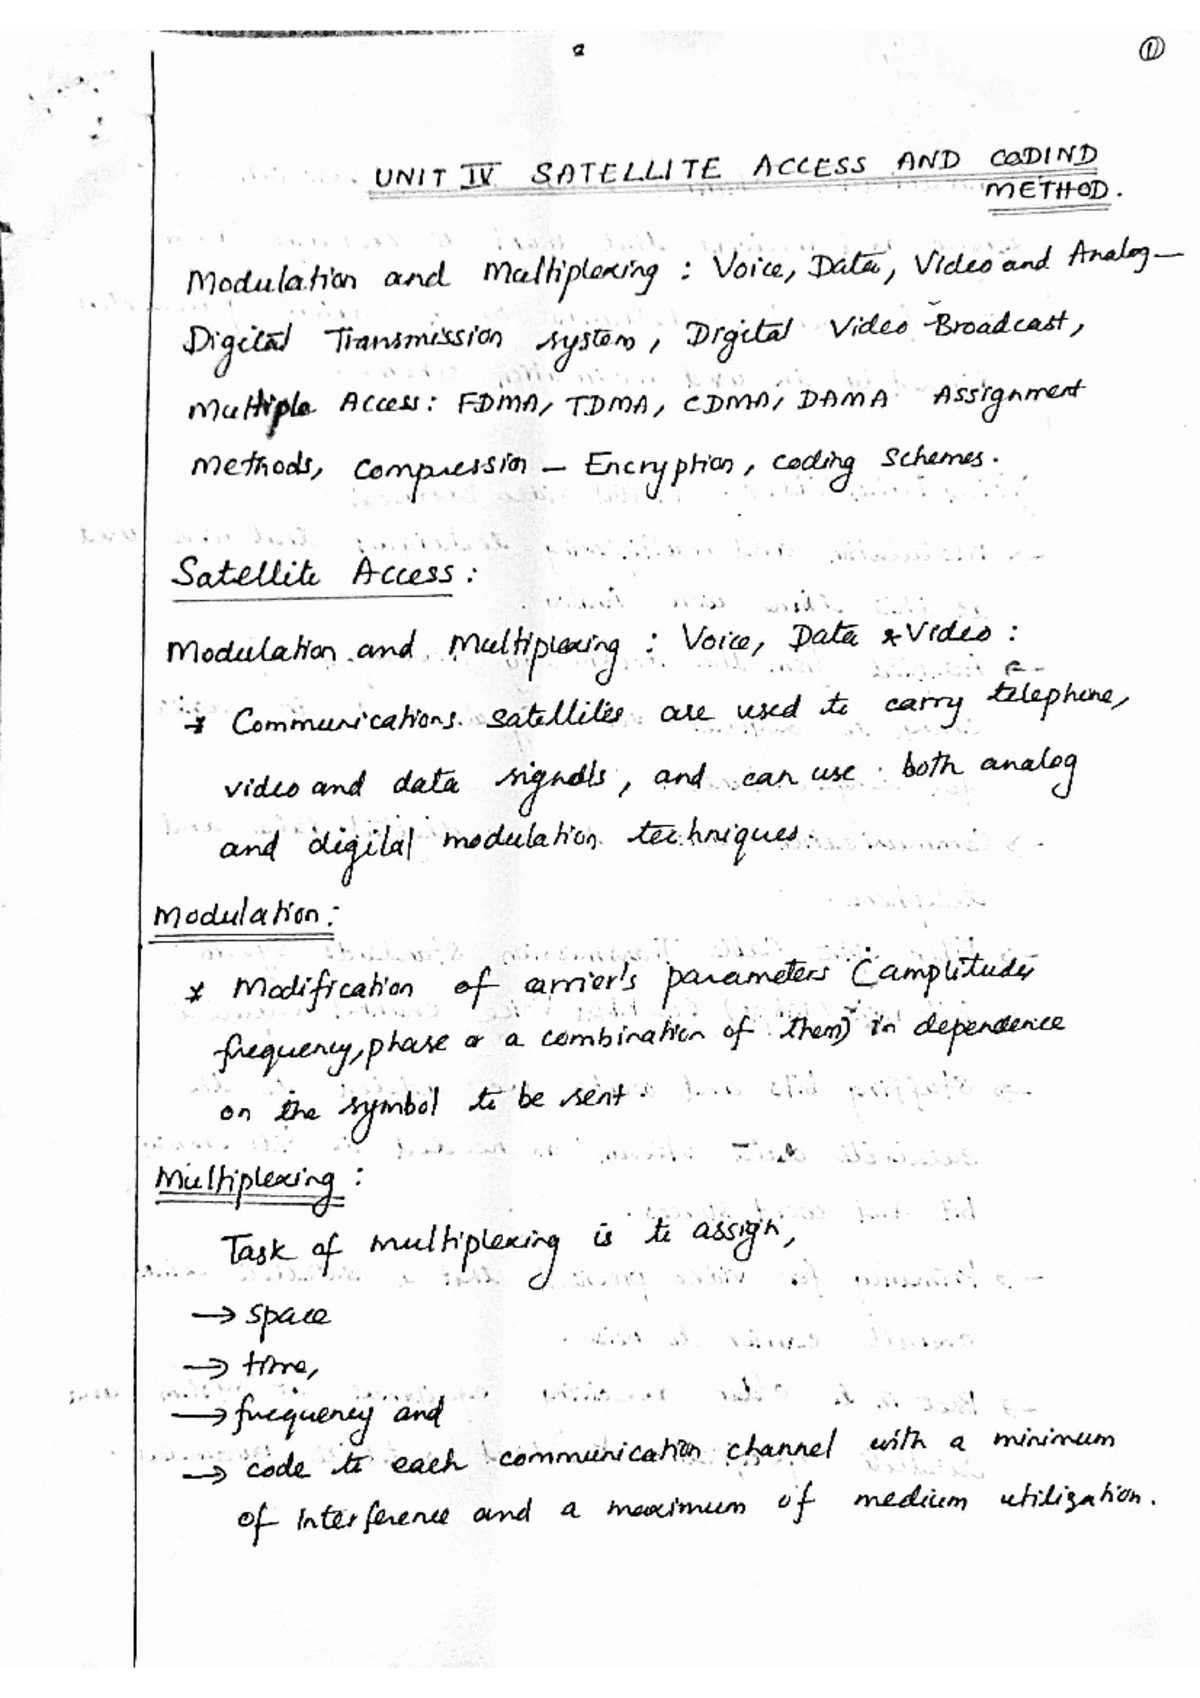 ①
UNIT IV SATELLITE ACCESS AND CODIND
METHOD.
Modulation and Multiplexing : Voice, Data, Video and Analog –
Digital Transmission system, Digital Video Broadcast,
Multiple Access: FDMA, TDMA, CDMA, DAMA Assignment
Methods, Compression – Encryption, coding Schemes.
Satellite Access :
Modulation and Multiplexing : Voice, Data & Video :
* Communications satellites are used to carry telephone,
video and data signals, and can use both analog
and digital modulation techniques.
Modulation :
* Modification of carrier's parameters (amplitude,
frequency, phase or a combination of them) in dependence
on the symbol to be sent.
Multiplexing :
Task of multiplexing is to assign,
→ space
→ time,
→ frequency and
→ code to each communication channel with a minimum
of interference and a maximum of medium utilization.